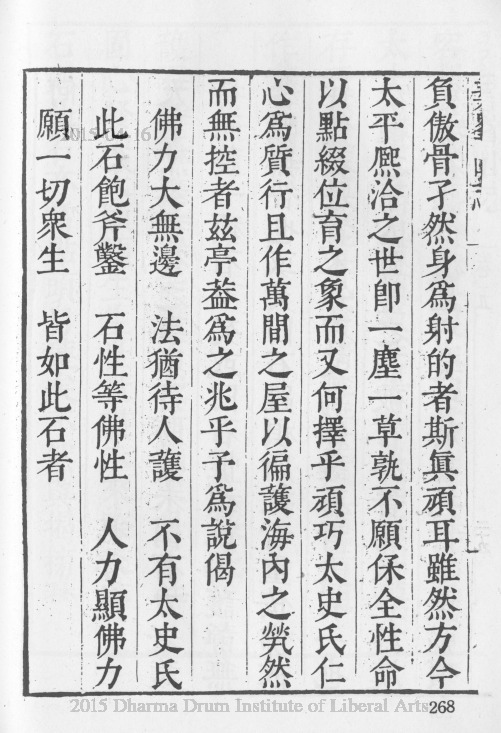 負傲骨孑然身爲射的者斯眞頑耳雖然方今
太平熈洽之世卽一塵一草孰不願保全性命
以點綴位育之象而又何擇乎頑巧太史氏仁
心爲質行且作萬間之屋以徧護海內之煢然
而無控者茲亭葢爲之兆乎予爲說偈
佛力大無邊　法猶待人護　不有太史氏
此石飽斧鑿　石性等佛性　人力顯佛力
願一切衆生　皆如此石者
2015 Dharma Drum Institute of Liberal Arts
268